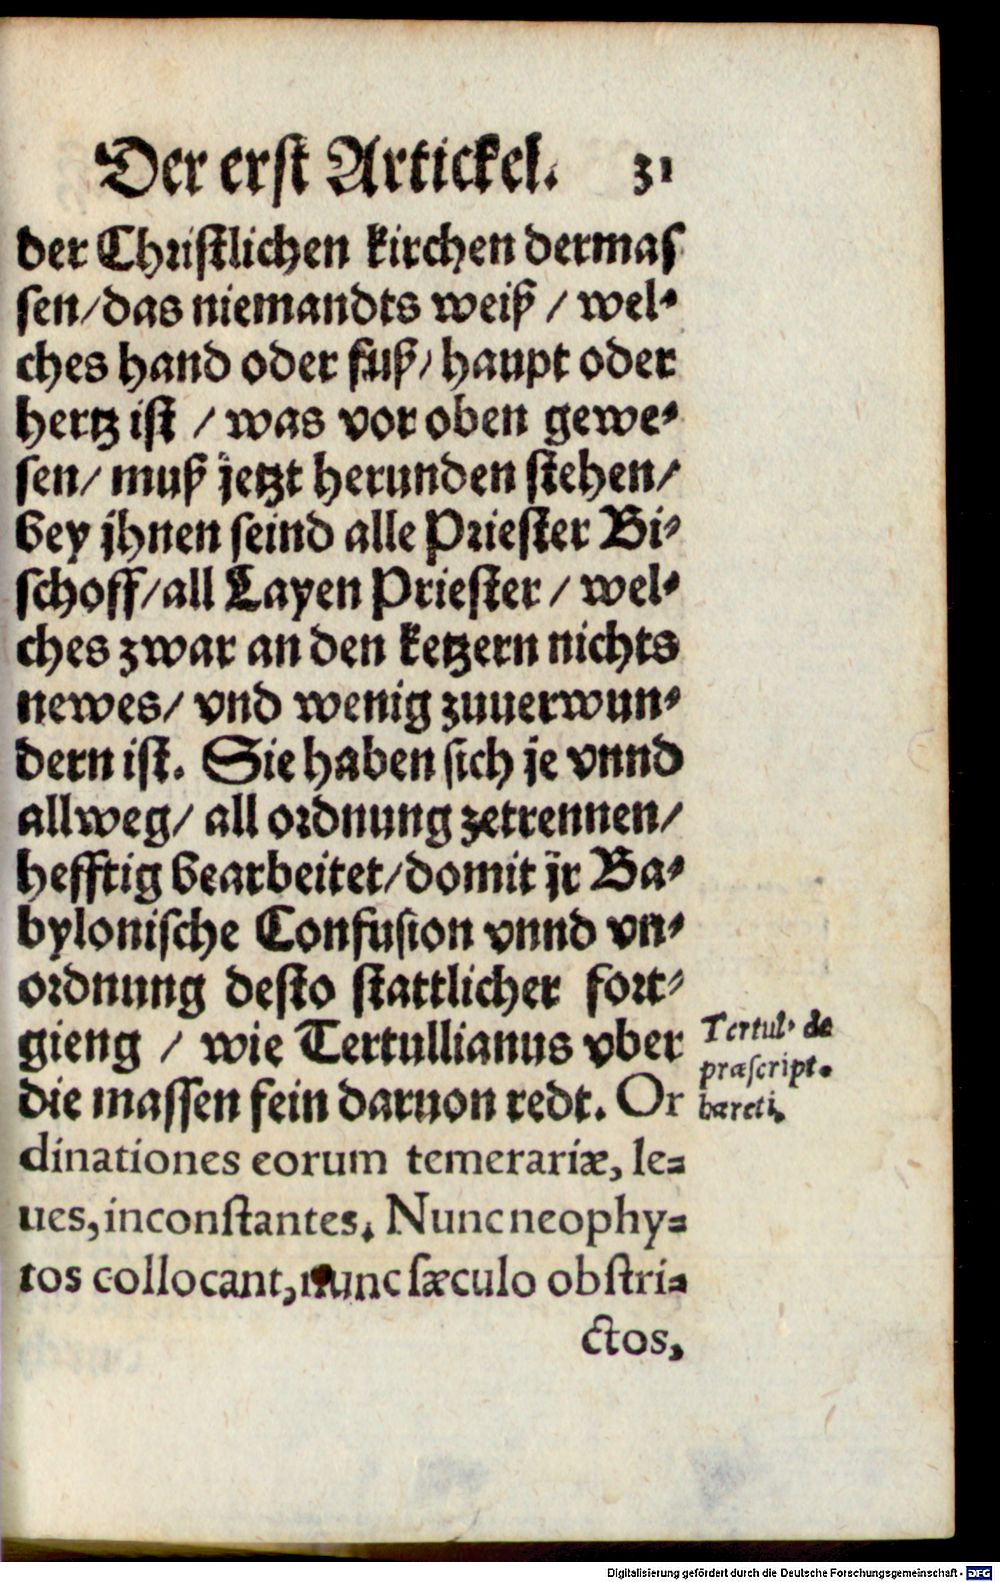 Der erst Artickel. 31
der Christlichen kirchen dermas
sen/das niemandts weiß / wel-
ches hand oder fuß/haupt oder
hertz ist / was vor oben gewe-
sen/ muß jetzt herunden stehen/
bey jhnen seind alle Priester Bi-
schoff/all Layen Priester / wel-
ches zwar an den ketzern nichts
newes/ vnd wenig zuuerwun-
dern ist. Sie haben sich je vnnd
allweg/ all ordnung zetrennen/
hefftig bearbeitet/domit jr Ba-
bylonische Confusion vnnd vn-
ordnung desto stattlicher fort-
gieng / wie Tertullianus vber
die massen fein daruon redt. Or
dinationes eorum temerariæ, le-
ues,inconstantes. Nunc neophy-
tos collocant,nunc sæculo obstri-
ctos,
Tertul. de
præscript.
hæreti.
Digitalisierung gefördert durch die Deutsche Forschungsgemeinschaft - DFG